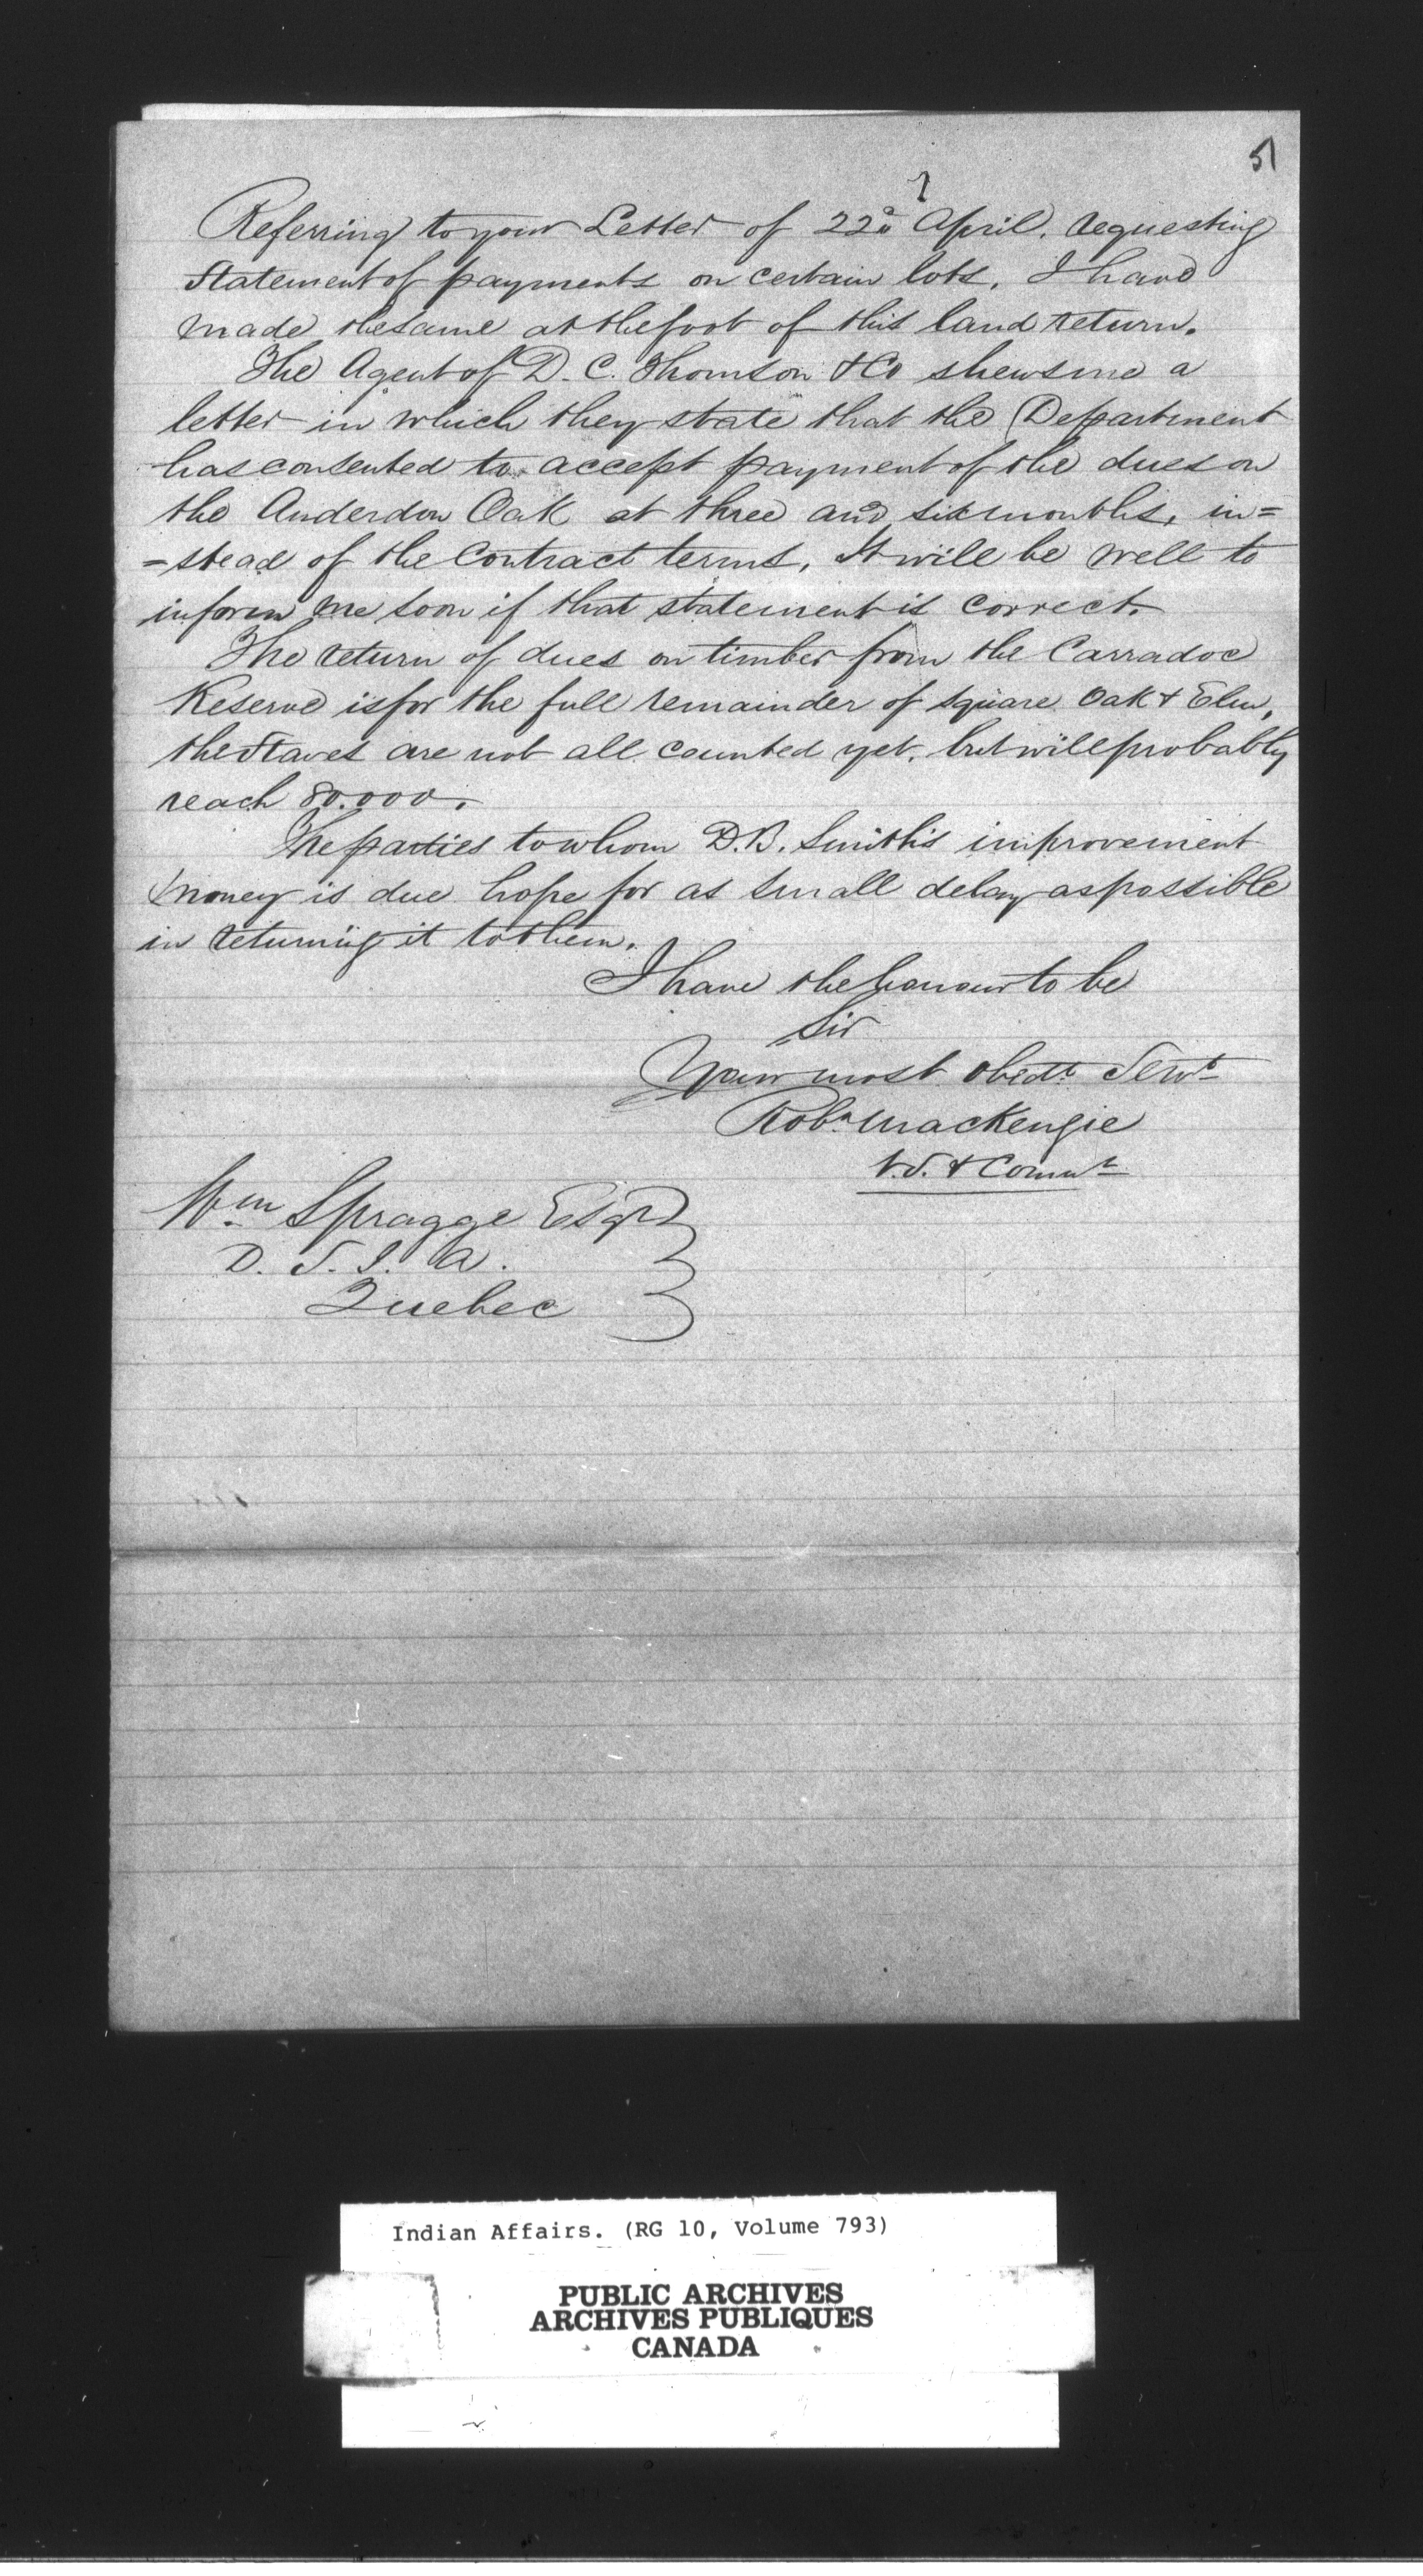 51
Referring to your Letter of 22d April. requesting
Statement of payments on certain lots, I have
made the same at the foot of this land return.
The Agent of D. C. Thomson & Co shews me a
letter in which they state that the Department
has consented to accept payment of the dues on
the Anderdon Oak at three and six months, in=
=stead of the Contract terms, It will be well to
inform me soon if that statement is correct.
The return of dues on timber from the Carradoc
Reserve is for the full remainder of square Oak & Elm,
the Staves are not all counted yet, but will probably
reach 80.000.
The parties to whom D.B. Smith's improvement
money is due hope for as small delay as possible
in returning it to them.
I have the honour to be
Sir
Your most obedt Servt
Robt Mackenzie
V.S. & Commr
Wm Spragge Esqr
D. S. I. A.
Quebec
Indian Affairs. (RG 10, Volume 793)
PUBLIC ARCHIVES
ARCHIVES PUBLIQUES
CANADA